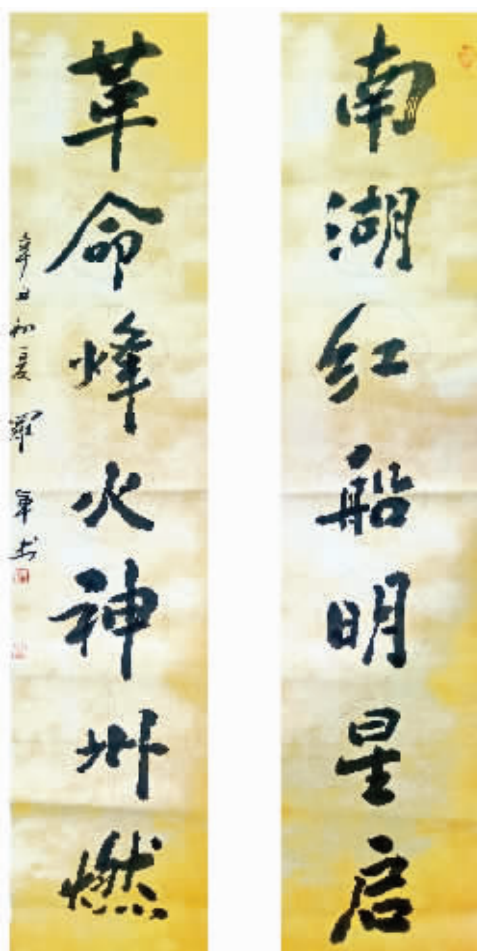 南湖红船明星启
革命烽火神州燃
辛丑初夏 罗军书